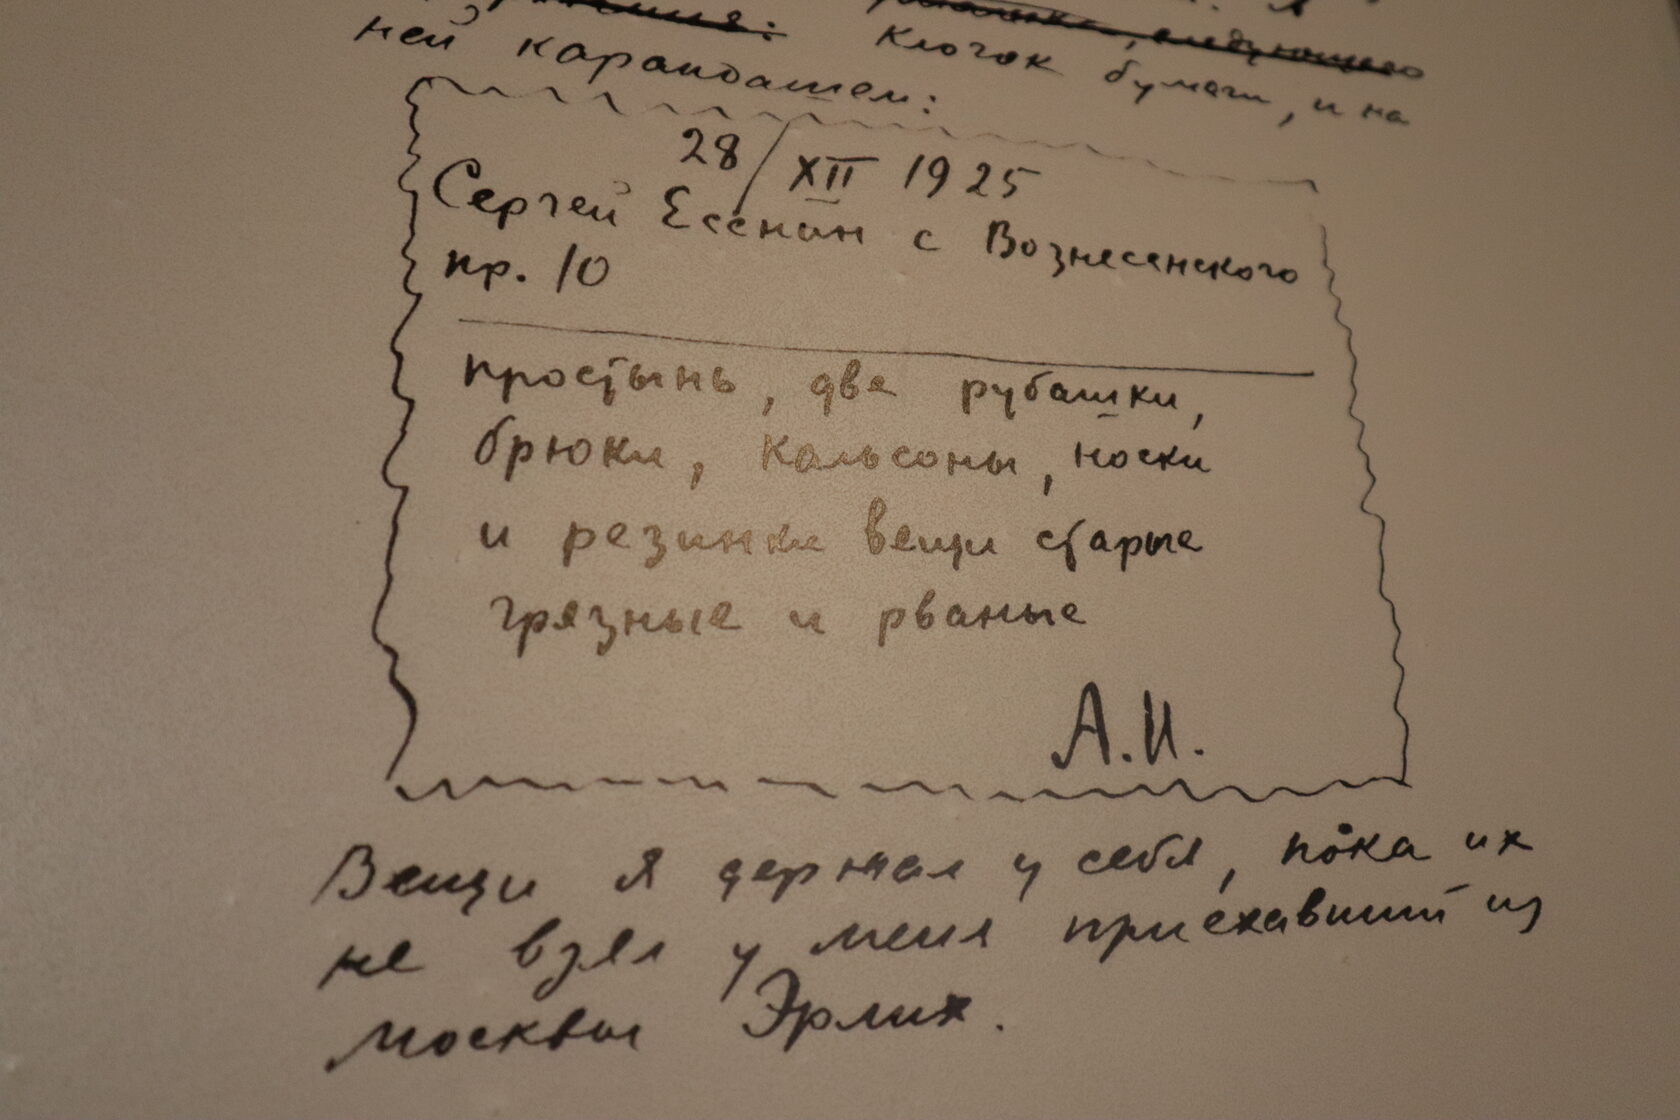 клочок бумаги, и на
ней карандашем:
28/XII 1925
Сергей Есенин с Вознесенского
пр. 10
простынь, две рубашки,
брюки, кальсоны, носки
и резинки вещи старые
грязные и рваные
А.И.
Вещи я держал у себя, пока их
не взял у меня приехавший из
москвы Эрлих.